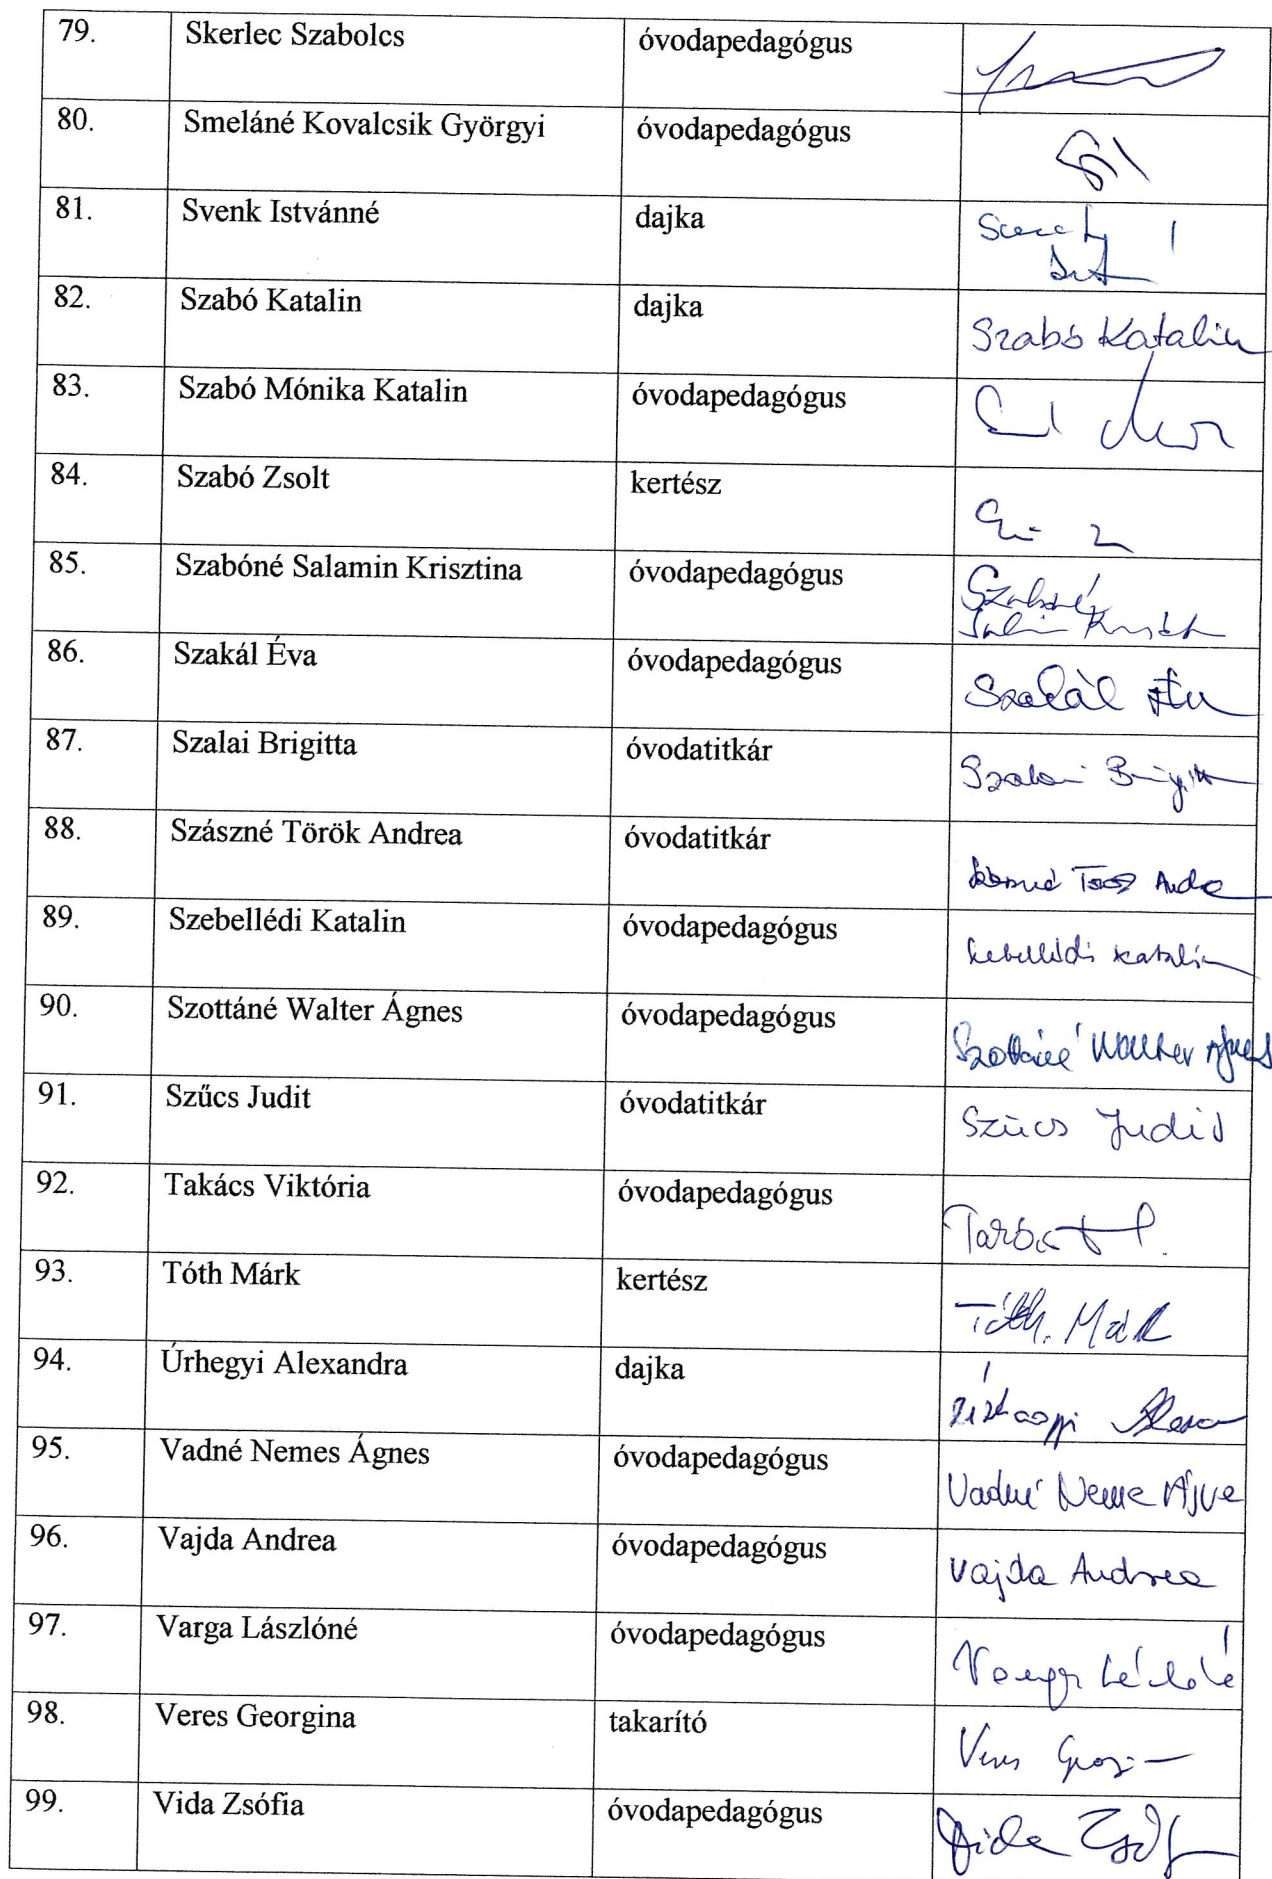 79. Skerlec Szabolcs óvodapedagógus
80. Smeláné Kovalcsik Györgyi óvodapedagógus
81. Svenk Istvánné dajka
82. Szabó Katalin dajka Szabó Katalin
83. Szabó Mónika Katalin óvodapedagógus
84. Szabó Zsolt kertész
85. Szabóné Salamin Krisztina óvodapedagógus Szabóné
86. Szakál Éva óvodapedagógus Szakál Éva
87. Szalai Brigitta óvodatitkár Szalai
88. Szászné Török Andrea óvodatitkár
89. Szebellédi Katalin óvodapedagógus Szebellédi Katalin
90. Szottáné Walter Ágnes óvodapedagógus Szottáné Walter Ágnes
91. Szűcs Judit óvodatitkár Szűcs Judit
92. Takács Viktória óvodapedagógus
93. Tóth Márk kertész Tóth Márk
94. Úrhegyi Alexandra dajka
95. Vadné Nemes Ágnes óvodapedagógus Vadné
96. Vajda Andrea óvodapedagógus Vajda Andrea
97. Varga Lászlóné óvodapedagógus
98. Veres Georgina takarító
99. Vida Zsófia óvodapedagógus Vida